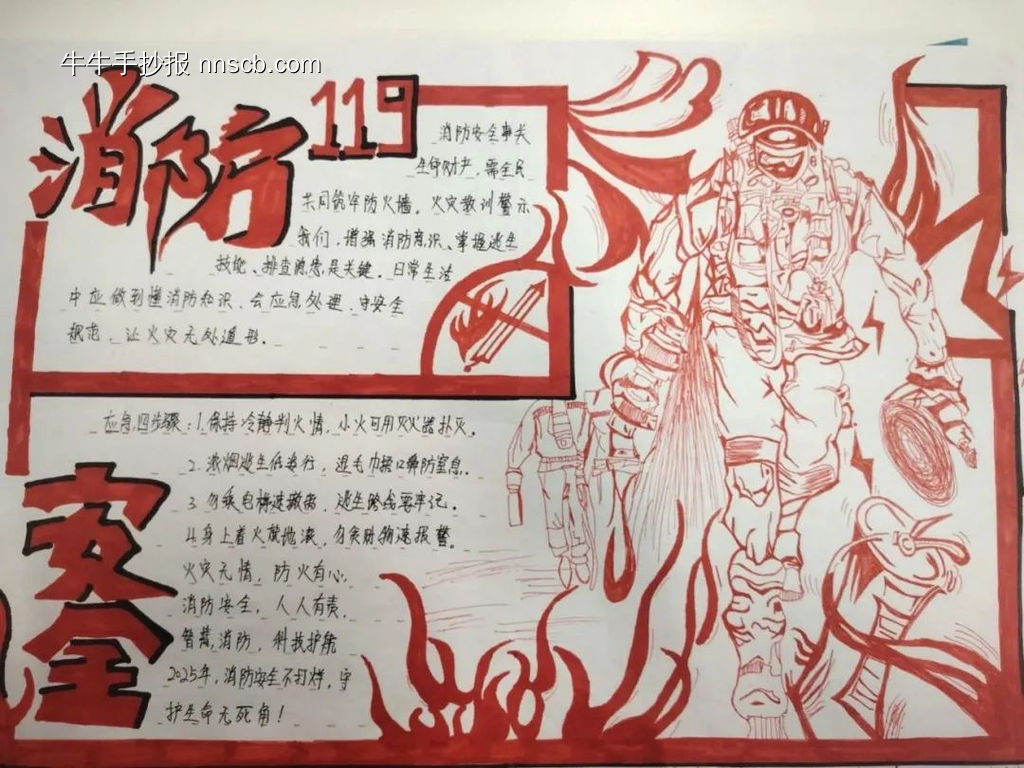 牛牛手抄报 nnscb.com
消防 119
消防安全事关
生命财产，需全民
共同筑牢防火墙。火灾教训警示
我们，增强消防意识、掌握逃生
技能、排查隐患是关键。日常生活
中应做到懂消防知识、会应急处理、守安全
规范，让火灾无处遁形。
应急四步骤：1.保持冷静判火情，小火可用灭火器扑灭。
2.浓烟逃生低姿行，湿毛巾捂口鼻防窒息。
3.勿乘电梯速撤离，逃生路线要牢记。
4.身上着火就地滚，勿贪财物速报警。
安全
火灾无情，防火有心，
消防安全，人人有责。
智慧消防，科技护航
2025年，消防安全不打烊，守
护生命无死角！